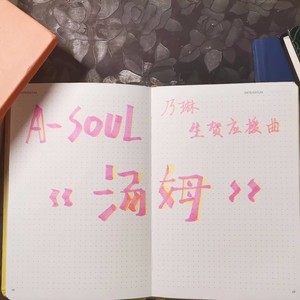 A-SOUL
乃琳
生贺应援曲
《汤姆》